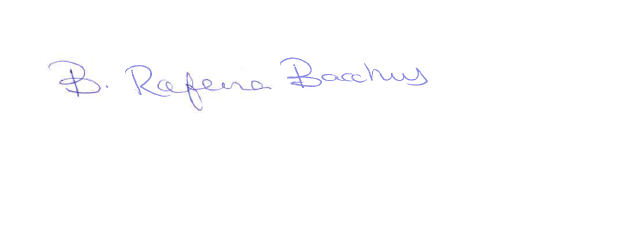 B. Rafeena Bacchus